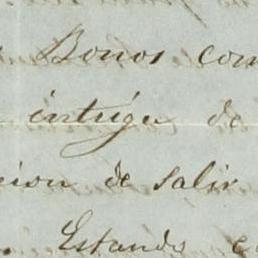 Bonos com
intriga de
cion de salir
Estando e